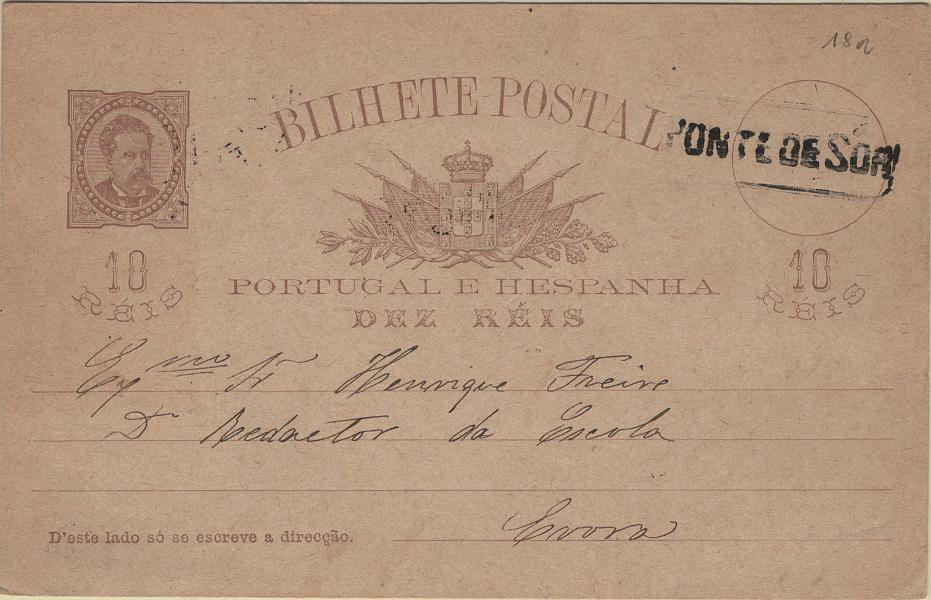 BILHETE-POSTAL
PONTE DE SOR
10
RÉIS
10
RÉIS
PORTUGAL E HESPANHA
DEZ RÉIS
Exmo Sr Henrique Freire
D. Redactor da Escola
Evora
D'este lado só se escreve a direcção.